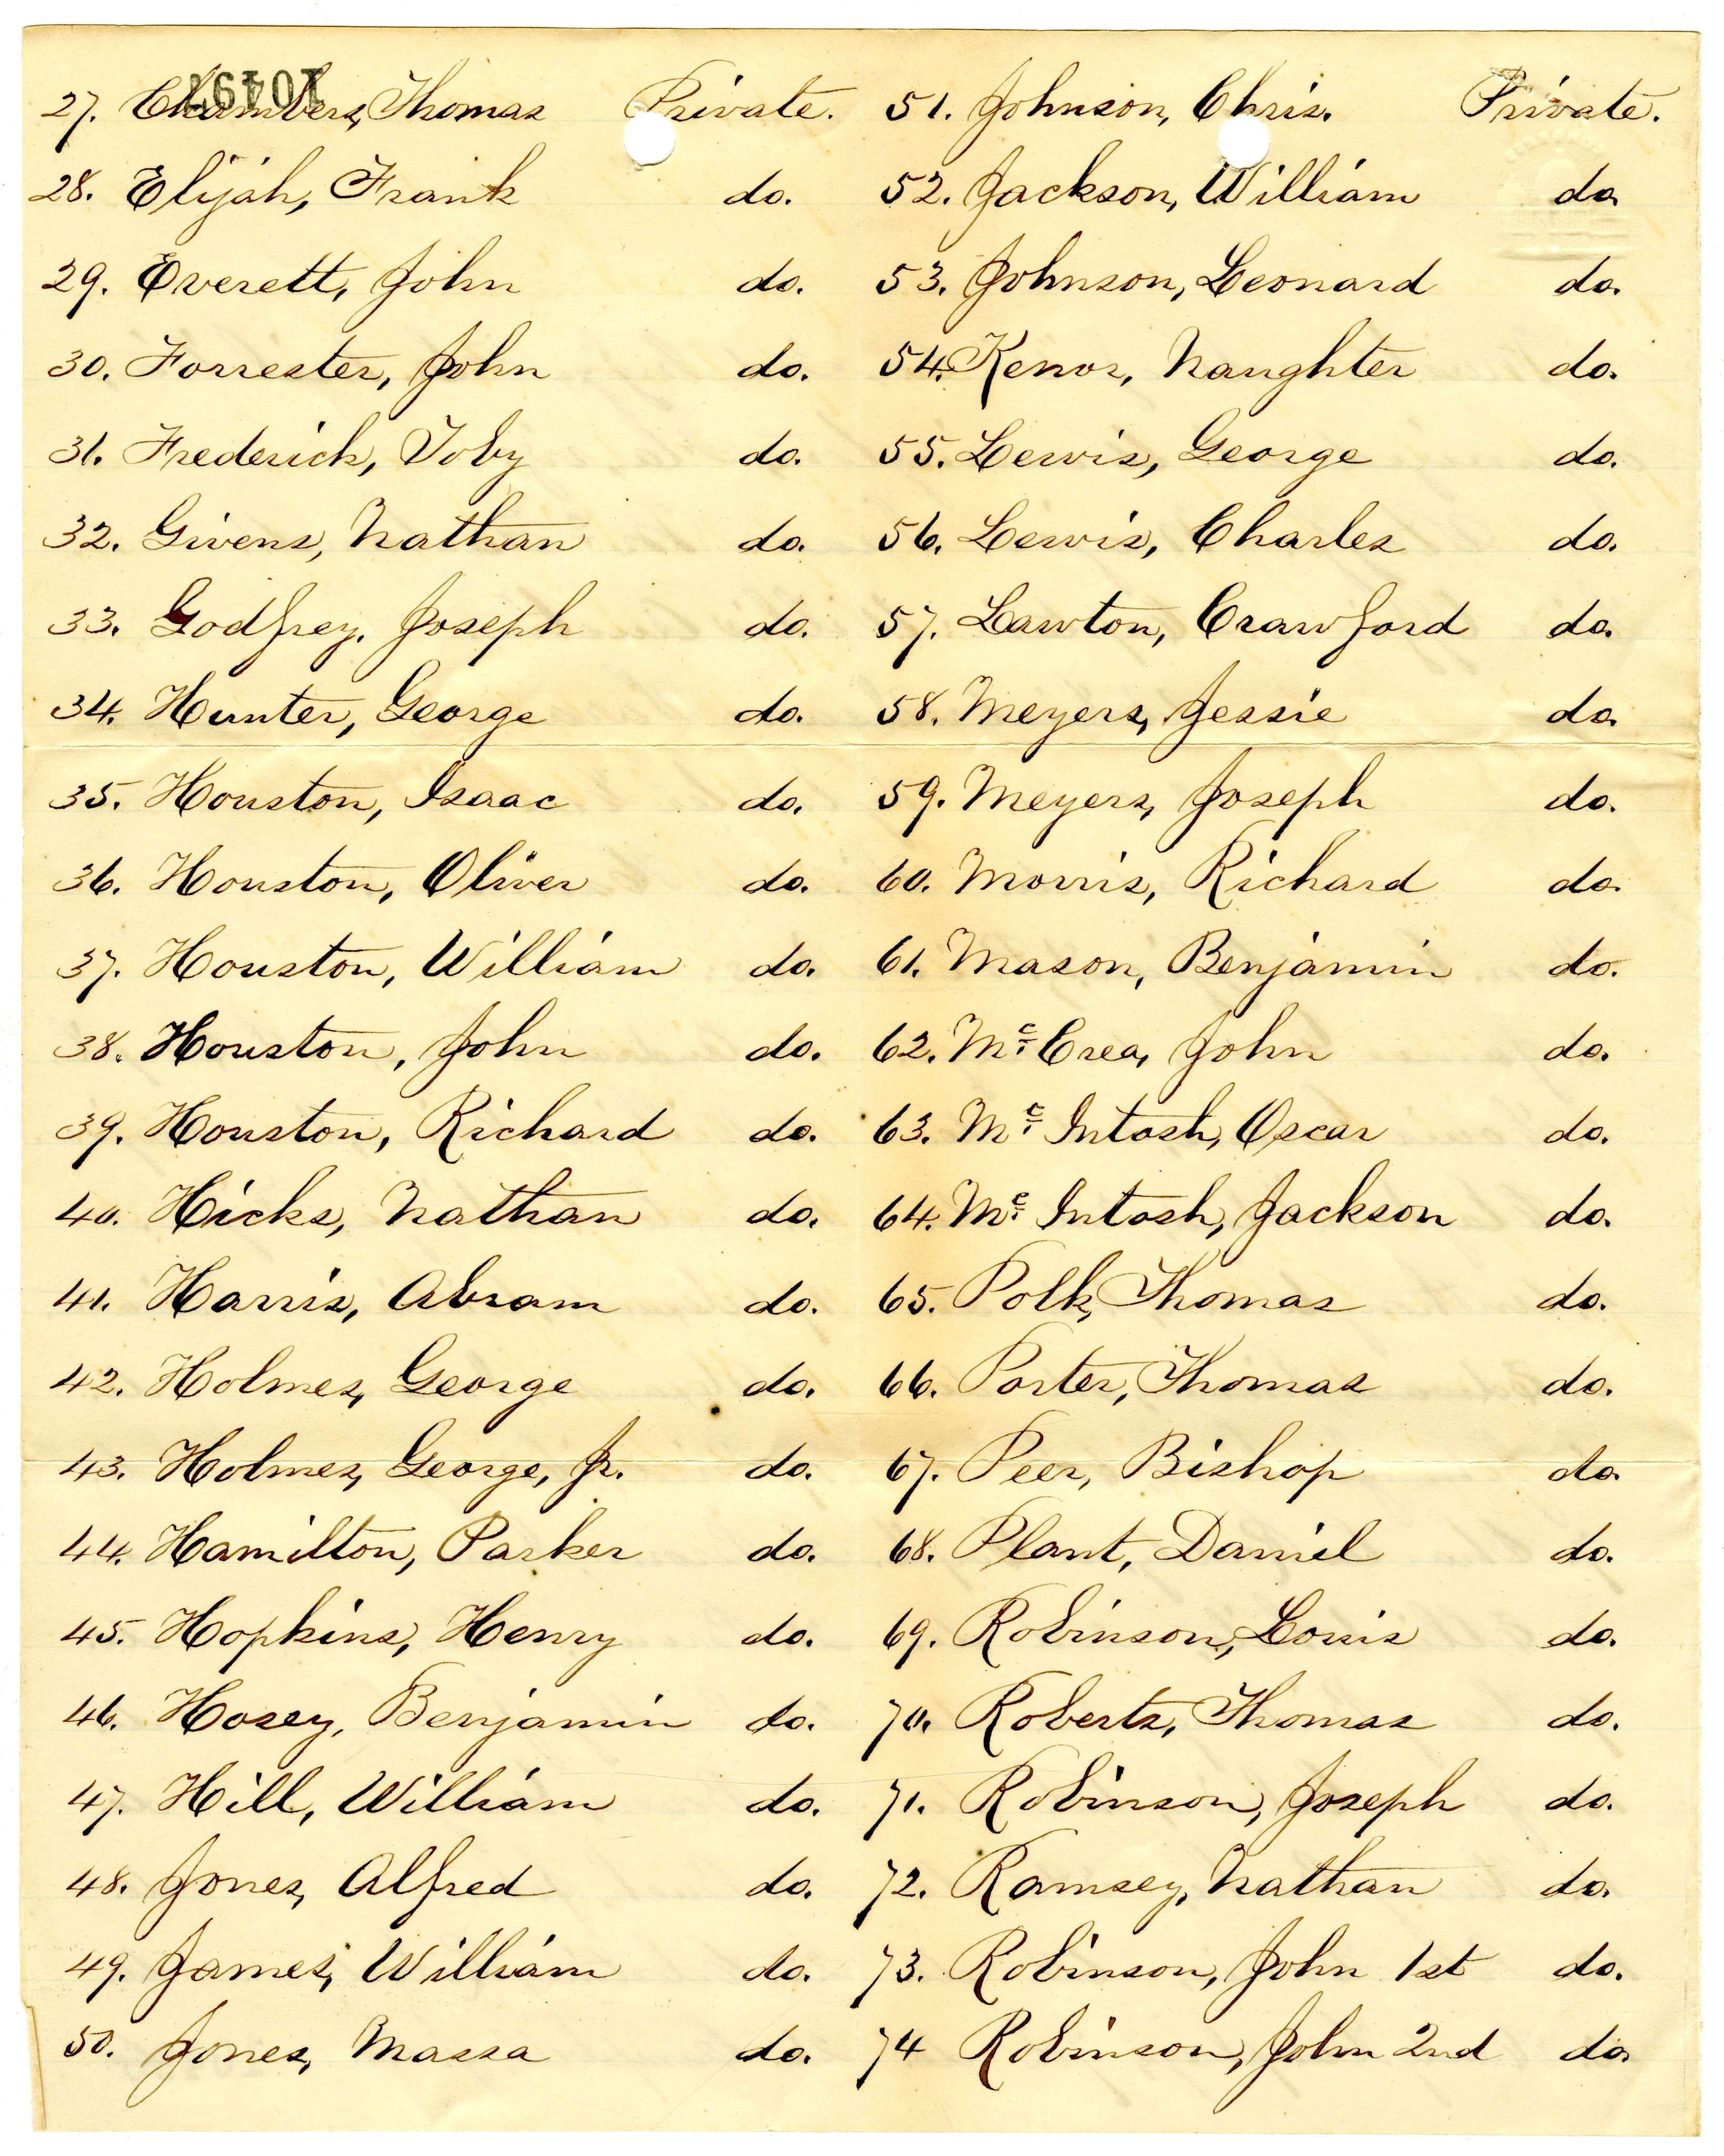 27. Chambers, Thomas Private.
28. Elijah, Frank do.
29. Everett, John do.
30. Forrester, John do.
31. Frederick, Toby do.
32. Givens, Nathan do.
33. Godfrey, Joseph do.
34. Hunter, George do.
35. Houston, Isaac do.
36. Houston, Oliver do.
37. Houston, William do.
38. Houston, John do.
39. Houston, Richard do.
40. Hicks, Nathan do.
41. Harris, Abram do.
42. Holmes, George do.
43. Holmes, George, Jr. do.
44. Hamilton, Parker do.
45. Hopkins, Henry do.
46. Hosey, Benjamin do.
47. Hill, William do.
48. Jones, Alfred do.
49. James, William do.
50. Jones, Massa do.
51. Johnson, Chris. Private.
52. Jackson, William do.
53. Johnson, Leonard do.
54. Kenor, Naughter do.
55. Lewis, George do.
56. Lewis, Charles do.
57. Lawton, Crawford do.
58. Meyers, Jessie do.
59. Meyers, Joseph do.
60. Morris, Richard do.
61. Mason, Benjamin do.
62. McCrea, John do.
63. Mc Intosh, Oscar do.
64. Mc Intosh, Jackson do.
65. Polk, Thomas do.
66. Porter, Thomas do.
67. Peer, Bishop do.
68. Plant, Daniel do.
69. Robinson, Louis do.
70. Roberts, Thomas do.
71. Robinson, Joseph do.
72. Ramsey, Nathan do.
73. Robinson, John 1st do.
74 Robinson, John 2nd do.